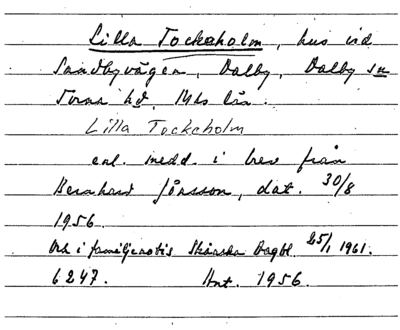 Lilla Tockeholm, hus vid
Sandbyvägen, Dalby, Dalby sn
Torna hd, Mhs län.
Lilla Tockeholm
enl. medd. i brev från
Bernhard Jönsson, dat. 30/8
1956.
Och i familjenotis Skånska Dagbl. 25/1 1961.
6247. Ant. 1956.